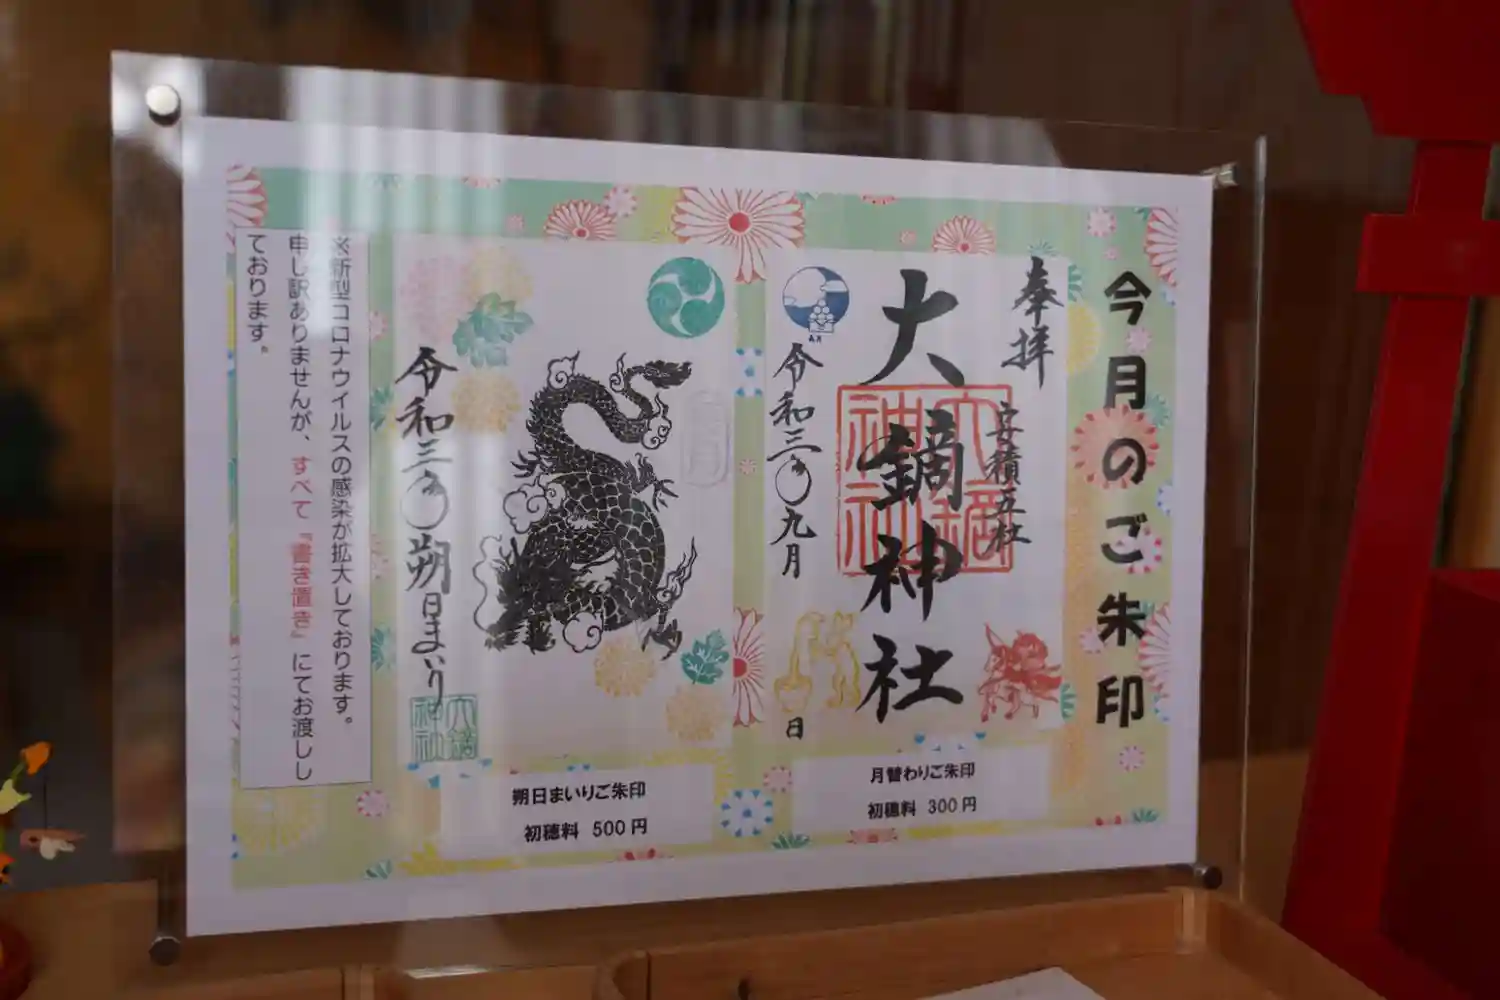 今月のご朱印
奉拝
安積五社
大鏑神社
大鏑
神社
令和三年〇九月
日
月替わりご朱印
初穂料 300円
令和三年〇朔日まいり
大鏑
神社
朔日まいりご朱印
初穂料 500円
※新型コロナウイルスの感染が拡大しております。
申し訳ありませんが、すべて『書き置き』にてお渡しし
ております。